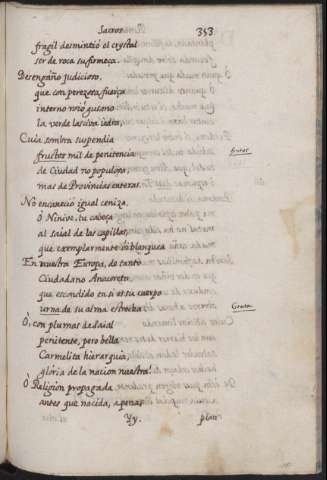 Sacros. 353
fragil desmintió el crystal
ser de roca su firmeça.
Desengaño judicioso,
que con perezosa fuerça
interno roió gusano
la verde lasciva iedra,
Cuia sombra suspendia
frustos mil de penitencia frutos
de Ciudad no populosa,
mas de Provincias enteras.
No encaneció igual ceniza,
ó Ninive, tu cabeça
al saial de las capillas,
que exemplarmente blanquea
En nuestra Europa, de tanto
Ciudadano Anacoreta
que escondido en si es su cuerpo
urna de su alma estrecha Gruta.
O, con plumas de saial
penitente, pero bella
Carmelita hierarquia,
gloria de la nacion nuestra!
O Religion propagada
antes que nacida, apenas
Yy. plan